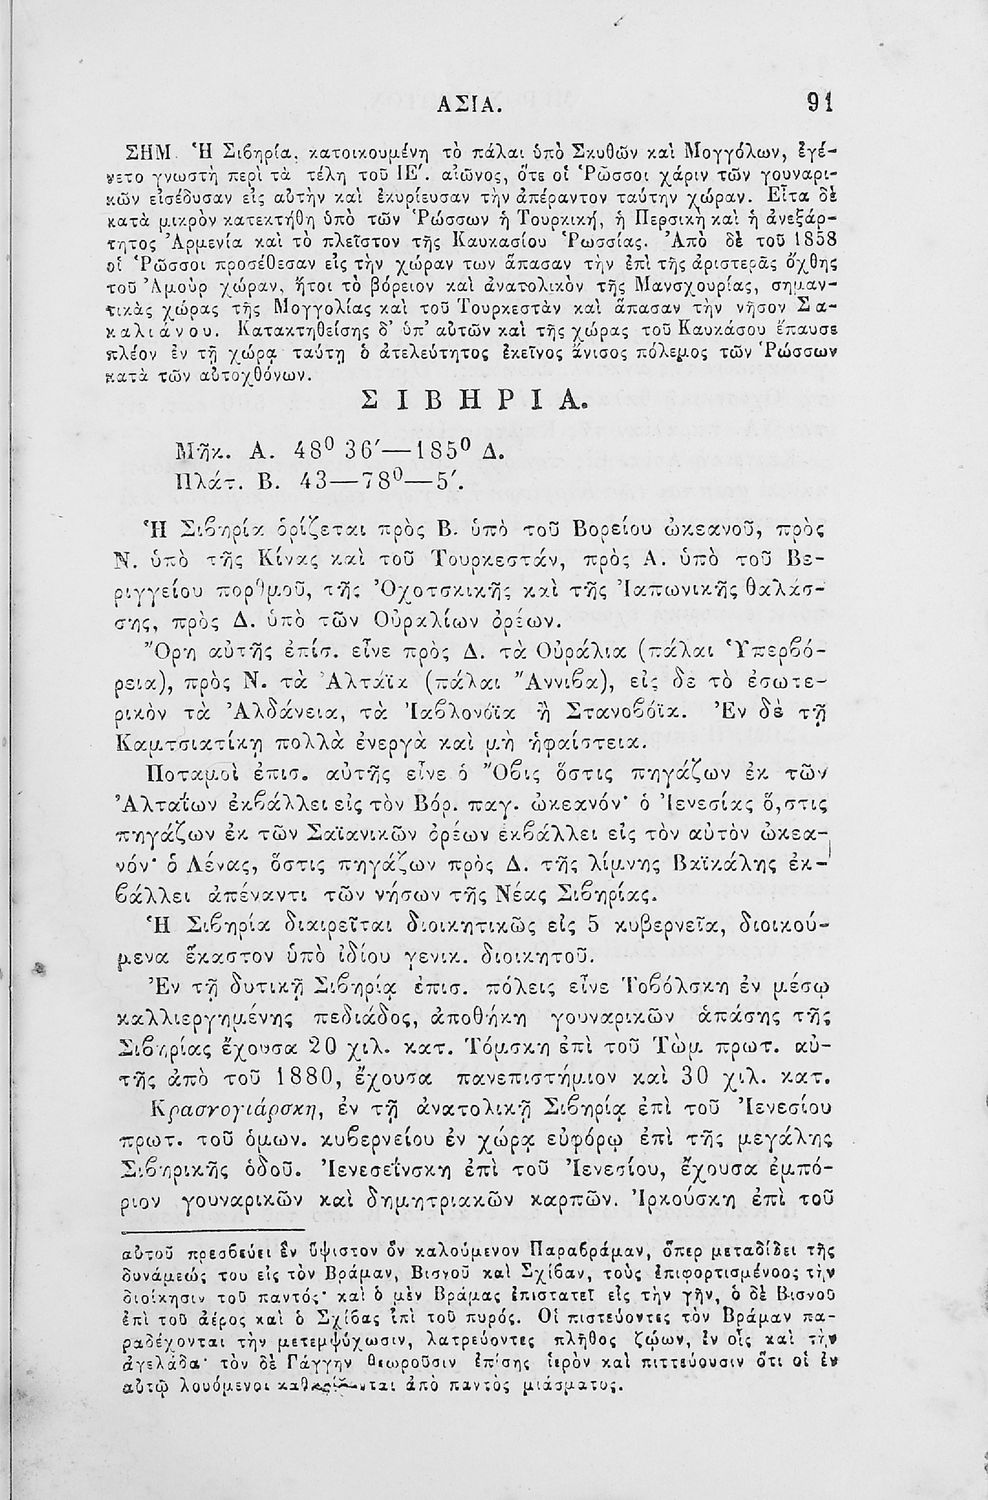 ΑΣΙΑ. 91
ΣΗΜ. Ἡ Σιβηρία, κατοικουμένη τὸ πάλαι ὑπὸ Σκυθῶν καὶ Μογγόλων, ἐγέ-
νετο γνωστὴ περὶ τὰ τέλη τοῦ ΙΕ΄. αἰῶνος, ὅτε οἱ Ῥῶσσοι χάριν τῶν γουναρι-
κῶν εἰσέδυσαν εἰς αὐτὴν καὶ ἐκυρίευσαν τὴν ἀπέραντον ταύτην χώραν. Εἶτα δὲ
κατὰ μικρὸν κατεκτήθη ὑπὸ τῶν Ῥώσσων ἡ Τουρκική, ἡ Περσικὴ καὶ ἡ ἀνεξάρ-
τητος Ἀρμενία καὶ τὸ πλεῖστον τῆς Καυκασίου Ῥωσσίας. Ἀπὸ δὲ τοῦ 1858
οἱ Ῥῶσσοι προσέθεσαν εἰς τὴν χώραν των ἅπασαν τὴν ἐπὶ τῆς ἀριστερᾶς ὄχθης
τοῦ Ἀμοὺρ χώραν, ἤτοι τὸ βόρειον καὶ ἀνατολικὸν τῆς Μανσχουρίας, σημαν-
τικὰς χώρας τῆς Μογγολίας καὶ τοῦ Τουρκεστὰν καὶ ἅπασαν τὴν νῆσον Σα-
καλιάνου. Κατακτηθείσης δ' ὑπ' αὐτῶν καὶ τῆς χώρας τοῦ Καυκάσου ἔπαυσε
πλέον ἐν τῇ χώρᾳ ταύτῃ ὁ ἀτελεύτητος ἐκεῖνος ἄνισος πόλεμος τῶν Ῥώσσων
κατὰ τῶν αὐτοχθόνων.
ΣΙΒΗΡΙΑ.
Μῆκ. Α. 48⁰ 36΄—185⁰ Δ.
Πλάτ. Β. 43—78⁰—5΄.
Ἡ Σιβηρία ὁρίζεται πρὸς Β. ὑπὸ τοῦ Βορείου ὠκεανοῦ, πρὸς
Ν. ὑπὸ τῆς Κίνας καὶ τοῦ Τουρκεστάν, πρὸς Α. ὑπὸ τοῦ Βε-
ριγγείου πορθμοῦ, τῆς Ὀχοτσκικῆς καὶ τῆς Ἰαπωνικῆς θαλάσ-
σης, πρὸς Δ. ὑπὸ τῶν Οὐραλίων ὀρέων.
Ὄρη αὐτῆς ἐπίσ. εἶνε πρὸς Δ. τὰ Οὐράλια (πάλαι Ὑπερβό-
ρεια), πρὸς Ν. τὰ Ἀλτάϊα (πάλαι Ἄννιβα), εἰς δὲ τὸ ἐσωτε-
ρικὸν τὰ Ἀλδάνεια, τὰ Ἰαβλονόϊα ἢ Στανοβόϊα. Ἐν δὲ τῇ
Καμτσιατίκῃ πολλὰ ἐνεργὰ καὶ μὴ ἡφαίστεια.
Ποταμοὶ ἐπισ. αὐτῆς εἶνε ὁ Ὄβις ὅστις πηγάζων ἐκ τῶν
Ἀλταΐων ἐκβάλλει εἰς τὸν Βόρ. παγ. ὠκεανόν· ὁ Ἰενεσίας ὅ,στις
πηγάζων ἐκ τῶν Σαϊανικῶν ὀρέων ἐκβάλλει εἰς τὸν αὐτὸν ὠκεα-
νόν· ὁ Λένας, ὅστις πηγάζων πρὸς Δ. τῆς λίμνης Βαϊκάλης ἐκ-
βάλλει ἀπέναντι τῶν νήσων τῆς Νέας Σιβηρίας.
Ἡ Σιβηρία διαιρεῖται διοικητικῶς εἰς 5 κυβερνεῖα, διοικού-
μενα ἕκαστον ὑπὸ ἰδίου γενικ. διοικητοῦ.
Ἐν τῇ δυτικῇ Σιβηρίᾳ ἐπισ. πόλεις εἶνε Τοβόλσκη ἐν μέσῳ
καλλιεργημένης πεδιάδος, ἀποθήκη γουναρικῶν ἁπάσης τῆς
Σιβηρίας ἔχουσα 20 χιλ. κατ. Τόμσκη ἐπὶ τοῦ Τὼμ πρωτ. αὐ-
τῆς ἀπὸ τοῦ 1880, ἔχουσα πανεπιστήμιον καὶ 30 χιλ. κατ.
Κρασνογιάρσκη, ἐν τῇ ἀνατολικῇ Σιβηρίᾳ ἐπὶ τοῦ Ἰενεσίου
πρωτ. τοῦ ὁμων. κυβερνείου ἐν χώρᾳ εὐφόρῳ ἐπὶ τῆς μεγάλης
Σιβηρικῆς ὁδοῦ. Ἰενεσεΐνσκη ἐπὶ τοῦ Ἰενεσίου, ἔχουσα ἐμπό-
ριον γουναρικῶν καὶ δημητριακῶν καρπῶν. Ἰρκούσκη ἐπὶ τοῦ
αὐτοῦ πρεσβεύει ἓν ὕψιστον ὂν καλούμενον Παραβράμαν, ὅπερ μεταδίδει τῆς
δυνάμεώς του εἰς τὸν Βράμαν, Βισνοῦ καὶ Σχίβαν, τοὺς ἐπιφορτισμένοος τὴν
διοίκησιν τοῦ παντός· καὶ ὁ μὲν Βράμας ἐπιστατεῖ εἰς τὴν γῆν, ὁ δὲ Βισνοῦ
ἐπὶ τοῦ ἀέρος καὶ ὁ Σχίβας ἐπὶ τοῦ πυρός. Οἱ πιστεύοντες τὸν Βράμαν πα-
ραδέχονται τὴν μετεμψύχωσιν, λατρεύοντες πλῆθος ζῴων, ἐν οἷς καὶ τὴν
ἀγελάδα· τὸν δὲ Γάγγην θεωροῦσιν ἐπίσης ἱερὸν καὶ πιττεύουσιν ὅτι οἱ ἐν
αὐτῷ λουόμενοι καθαρίζονται ἀπὸ παντὸς μιάσματος.